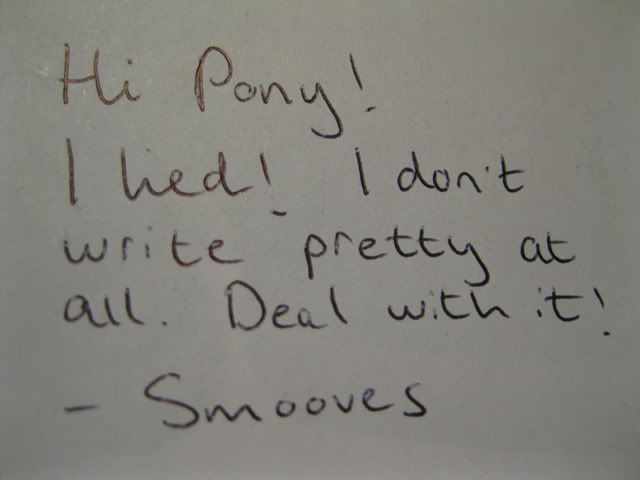 Hi Pony!
I lied! I don't
write pretty at
all. Deal with it!
- Smooves